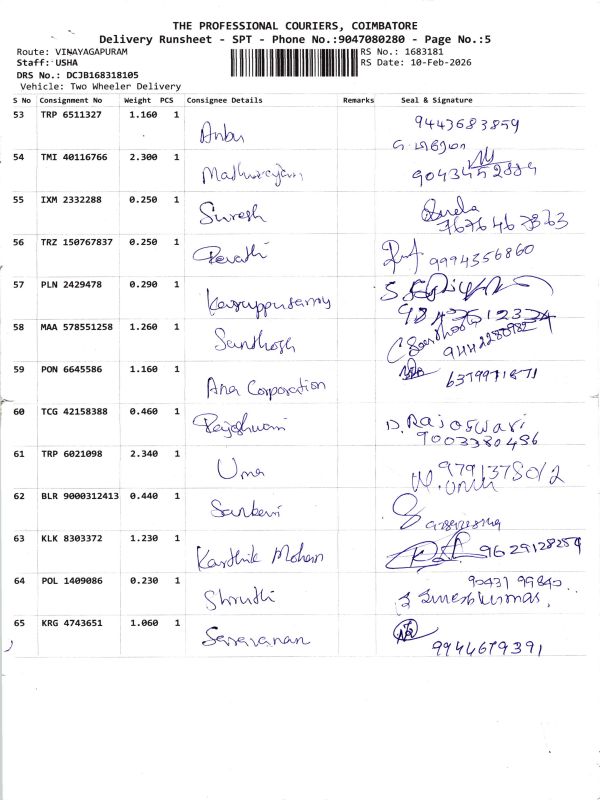 THE PROFESSIONAL COURIERS, COIMBATORE
Delivery Runsheet - SPT - Phone No.:9047080280 - Page No.:5
Route: VINAYAGAPURAM RS No.: 1683181
Staff: USHA RS Date: 10-Feb-2026
DRS No.: DCJB168318105
Vehicle: Two Wheeler Delivery
S No Consignment No Weight PCS Consignee Details Remarks Seal & Signature
53 TRP 6511327 1.160 1 Anbu 9443683859
54 TMI 40116766 2.300 1
55 IXM 2332288 0.250 1 Suresh
56 TRZ 150767837 0.250 1 Revathi 9994356860
57 PLN 2429478 0.290 1 Karuppusamy
58 MAA 578551258 1.260 1 Santhosh
59 PON 6645586 1.160 1 Ana Corporation
60 TCG 42158388 0.460 1 Rajeshwari D. Rajoswari
9003380496
61 TRP 6021098 2.340 1 Uma
62 BLR 9000312413 0.440 1
63 KLK 8303372 1.230 1 Karthik Mohan 9629128254
64 POL 1409086 0.230 1 Shruthi
65 KRG 4743651 1.060 1 Saravanan 9944679391